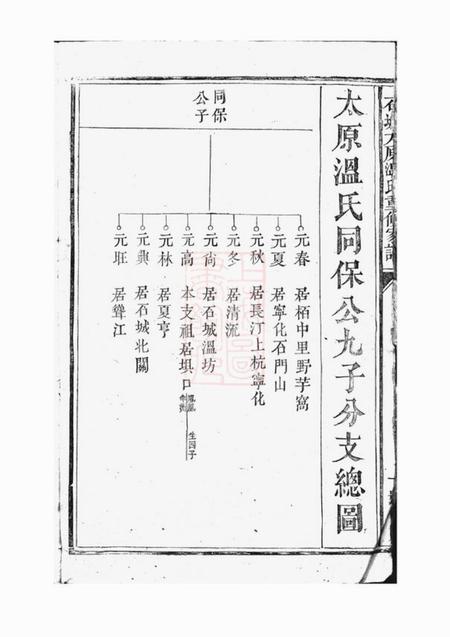 石城太原溫氏重修家譜
太原溫氏同保公九子分支總圖
同保
公子
元春 居栢中里野芋窩
元夏 居寧化石門山
元秋 居長汀上杭寧化
元冬 居清流
元尚 居石城溫坊
元高 本支祖居埧口
生四子
元林 居夏亨
元典 居石城北關
元旺 居聳江